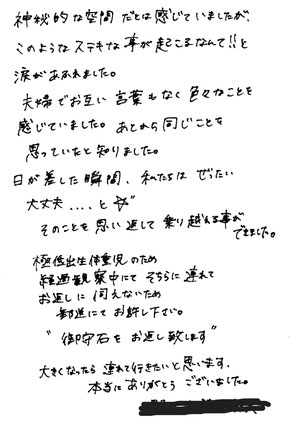 神秘的な空間だとは感じていましたが、
このようなステキな事が起こるなんて!!と
涙があふれました。
夫婦でお互い言葉もなく色々なことを
感じていました。あとから同じことを
思っていたと知りました。
日が差した瞬間、私たちはぜったい
大丈夫....と☆
そのことを思い返して乗り越える事が
できました。
極低出生体重児のため
経過観察中にてそちらに連れて
お返しに伺えないため
郵送にてお許し下さい。
"御守石をお返し致します"
大きくなったら連れて行きたいと思います。
本当にありがとうございました。